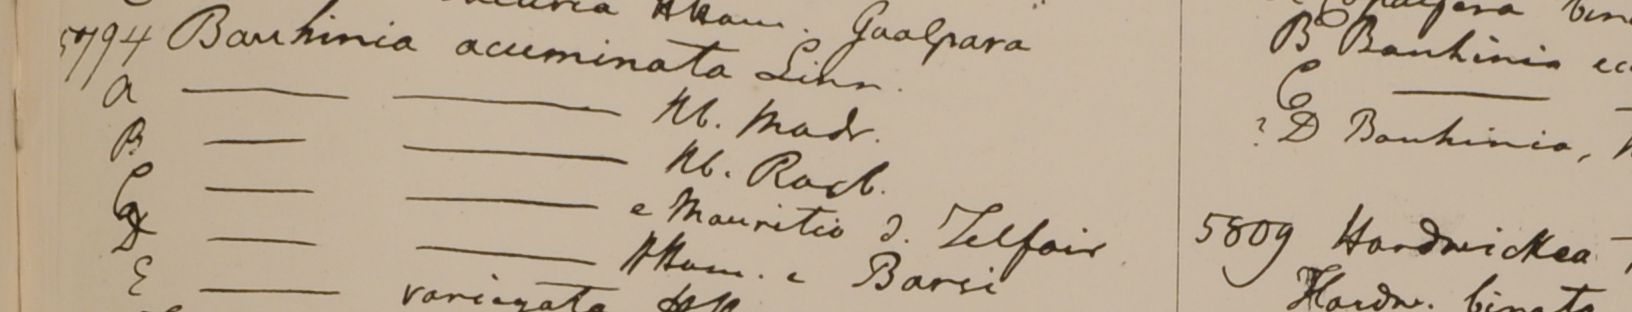 HHam. Goalpara
5794 Bauhinia acuminata Linn.
a — — Hb. Madr.
B — — Hb. Roxb.
C — — e Mauritio d. Telfair
D — — HHam. e Barsi
E — variegata HH
B Bauhinia
C —
? D Bauhinia,
5809 Hardwickea
Hardw. binata